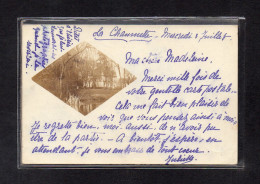 La Chaumette - Mercredi 2 Juillet
Ma chère Madeleine,
Merci mille fois de
votre gentille carte postale.
Cela me fait bien plaisir de
voir que vous pensez ainsi à moi,
je regrette bien, moi aussi, de n'avoir pu
être de la partie - A bientôt j'espère en
attendant je vous embrasse de tout coeur.
Juliette